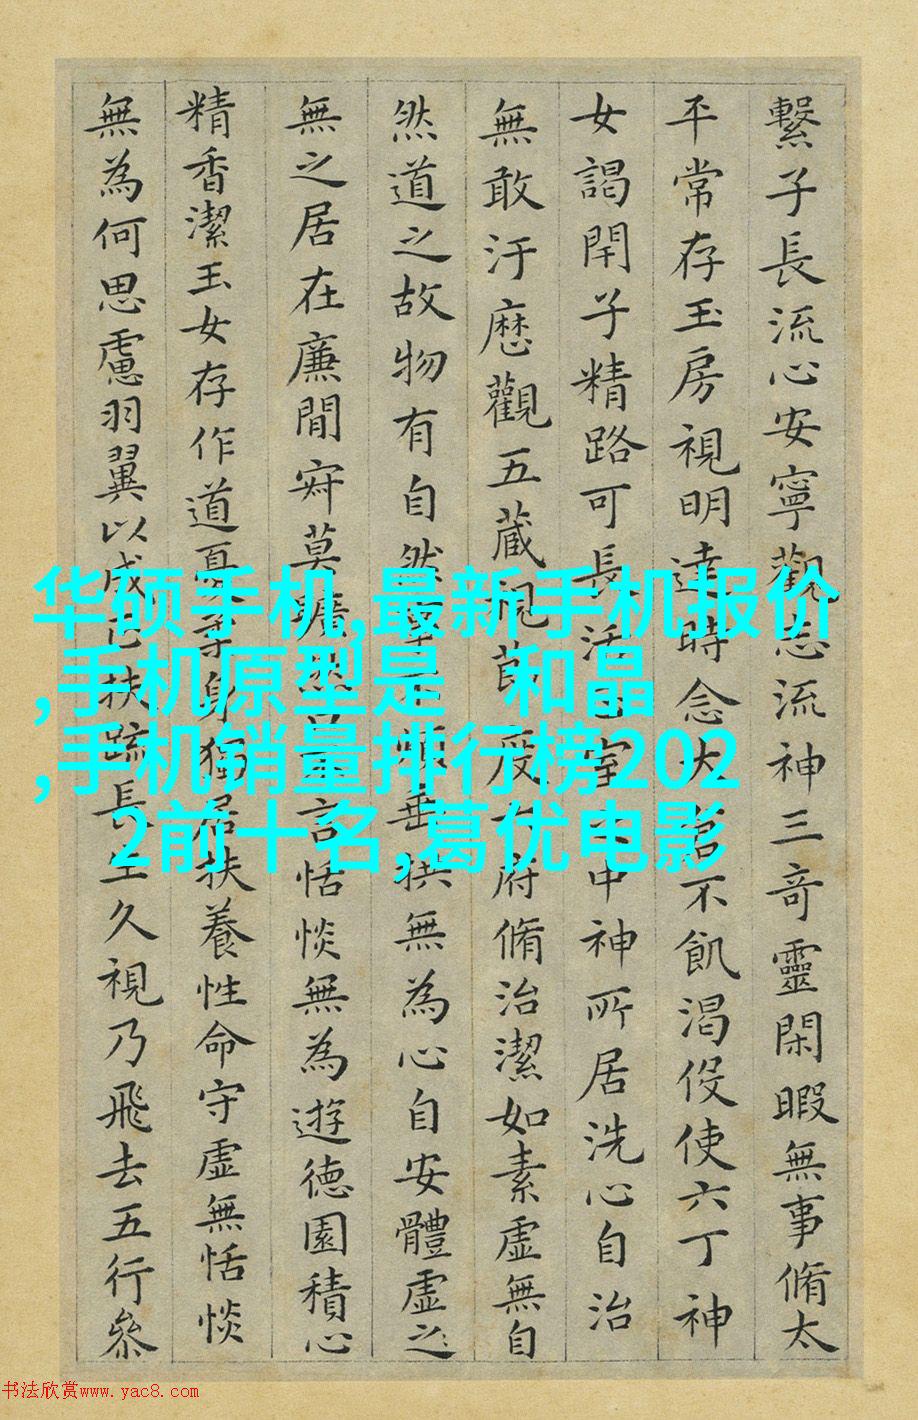 繫子長流心安寧觀志流神三奇靈閑暇無事脩太
平常存玉房視明達時念大倉不飢渴伇使六丁神
女謁閇子精路可長活室中神所居洗心自治
無敢汙歷觀五藏視節度六府脩治潔如素虛無自
然道之故物有自然事煩垂拱無為心自安體虛之
無之居在廉間寂莫曠然言恬惔無為遊德園積心
精香潔玉女存作道憂柔身獨居扶養性命守虛無恬惔
無為何思慮羽翼以成扶疏長生久視乃飛去五行參
华硕手机,最新手机报价
,手机原型是 和晶
,手机销量排行榜202
2前十名,葛优电影
书法欣赏www.yac8.com